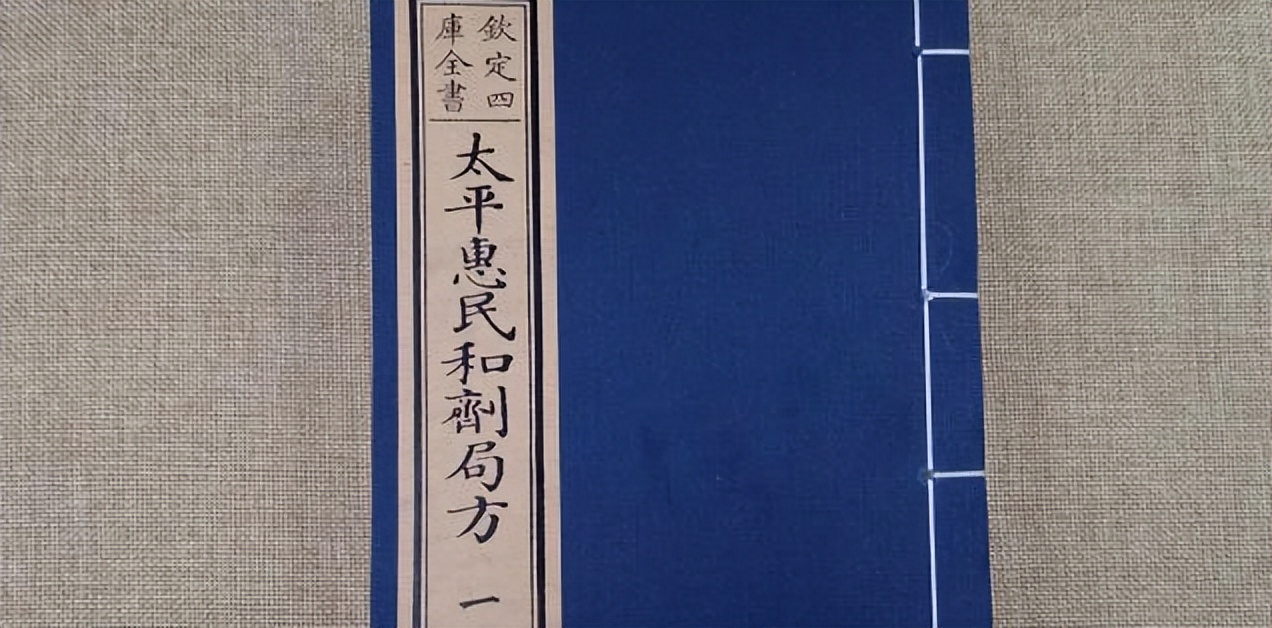 欽定四
庫全書
太平惠民和劑局方
一